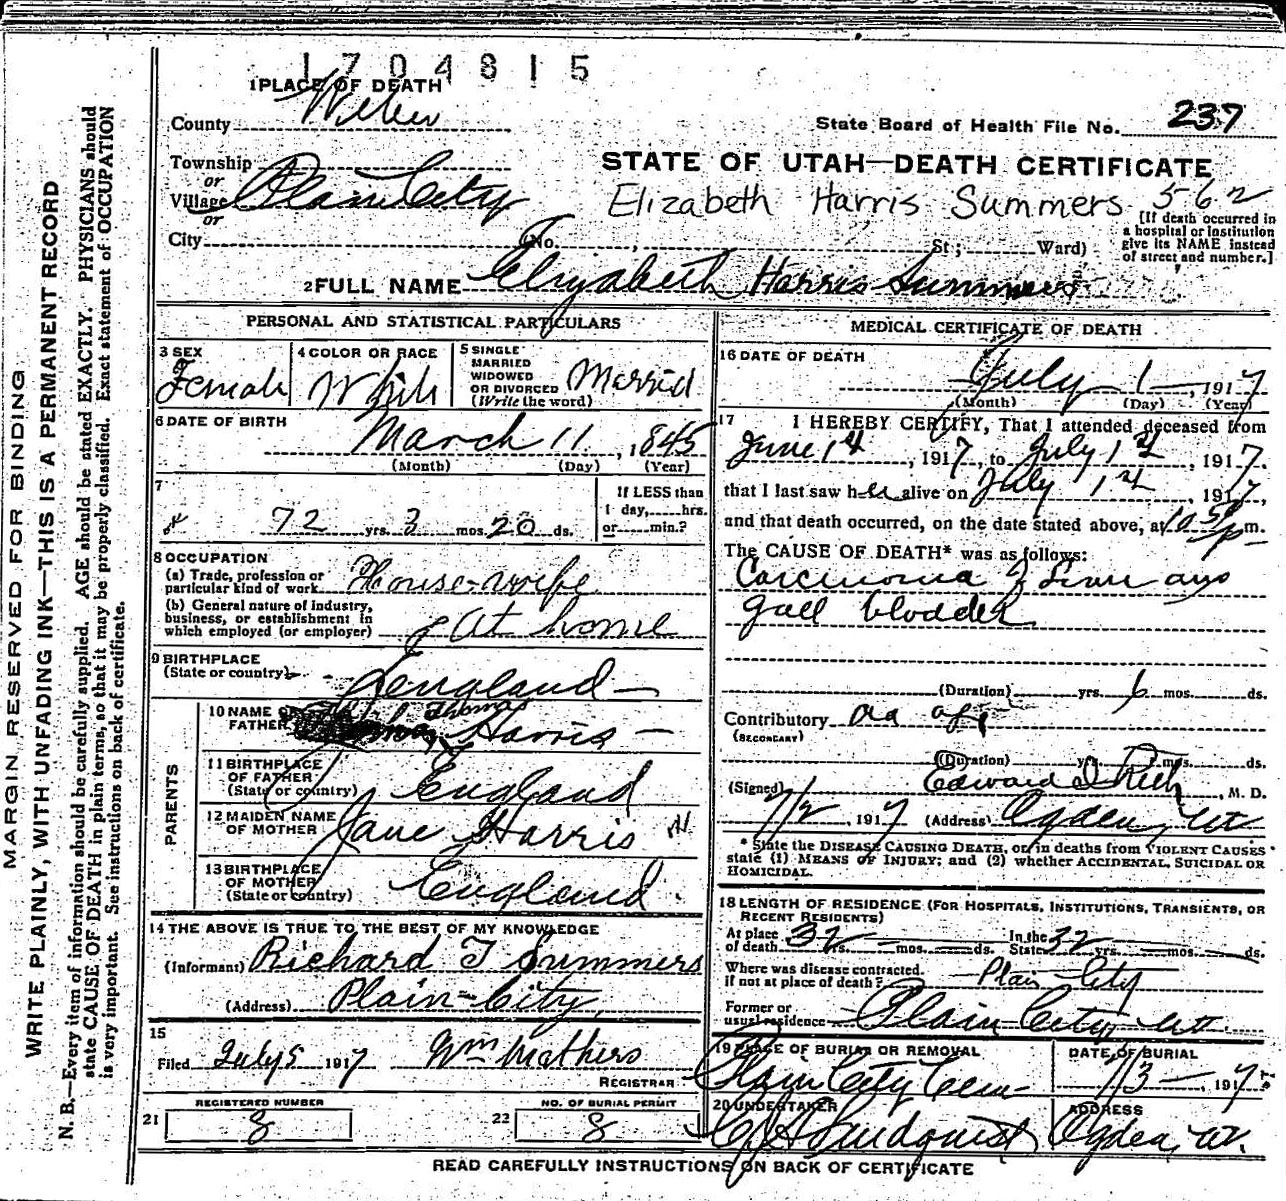 1704815
1 PLACE OF DEATH
County Weber
State Board of Health File No. 237
Township
or
Village Plain City
or
City No. St; Ward)
STATE OF UTAH—DEATH CERTIFICATE
Elizabeth Harris Summers 562
[If death occurred in
a hospital or institution
give its NAME instead
of street and number.]
2 FULL NAME Elizabeth Harris Summers
PERSONAL AND STATISTICAL PARTICULARS
3 SEX
Female
4 COLOR OR RACE
White
5 SINGLE
MARRIED
WIDOWED
OR DIVORCED
(Write the word)
Married
6 DATE OF BIRTH
March 11, 1845
(Month) (Day) (Year)
7
72 yrs. 3 mos. 20 ds.
If LESS than
1 day, hrs.
or min.?
8 OCCUPATION
(a) Trade, profession or
particular kind of work House-wife
(b) General nature of industry,
business, or establishment in
which employed (or employer) At home
9 BIRTHPLACE
(State or country) England
PARENTS
10 NAME OF
FATHER Thomas Harris
11 BIRTHPLACE
OF FATHER
(State or country) England
12 MAIDEN NAME
OF MOTHER Jane Harris
13 BIRTHPLACE
OF MOTHER
(State or country) England
14 THE ABOVE IS TRUE TO THE BEST OF MY KNOWLEDGE
(Informant) Richard T Summers
(Address) Plain City,
15
Filed July 5 1917 Wm Mathers
REGISTRAR
REGISTERED NUMBER
21 8
NO. OF BURIAL PERMIT
22 8
MEDICAL CERTIFICATE OF DEATH
16 DATE OF DEATH
July 1 1917
(Month) (Day) (Year)
17 I HEREBY CERTIFY, That I attended deceased from
June 1st, 1917, to July 1st, 1917.
that I last saw her alive on July 1st, 1917,
and that death occurred, on the date stated above, at 10 50 p m.
The CAUSE OF DEATH* was as follows:
Carcinoma of Liver and
gall bladder
(Duration) yrs. 6 mos. ds.
Contributory Old age
(SECONDARY)
(Duration) yrs. mos. ds.
(Signed) Edward I Rich, M. D.
7/2, 1917 (Address) Ogden, Ut
* State the DISEASE CAUSING DEATH, or in deaths from VIOLENT CAUSES
state (1) MEANS OF INJURY; and (2) whether ACCIDENTAL, SUICIDAL OR
HOMICIDAL.
18 LENGTH OF RESIDENCE (FOR HOSPITALS, INSTITUTIONS, TRANSIENTS, OR
RECENT RESIDENTS)
At place
of death 32 yrs. mos. ds. In the State 32 yrs. mos. ds.
Where was disease contracted,
if not at place of death? Plain City
Former or
usual residence Plain City, Ut.
19 PLACE OF BURIAL OR REMOVAL
Plain City Cem
DATE OF BURIAL
7/3, 1917
20 UNDERTAKER
Lindquist
ADDRESS
Ogden, Ut.
READ CAREFULLY INSTRUCTIONS ON BACK OF CERTIFICATE
MARGIN RESERVED FOR BINDING
WRITE PLAINLY, WITH UNFADING INK—THIS IS A PERMANENT RECORD
N. B.—Every item of information should be carefully supplied. AGE should be stated EXACTLY. PHYSICIANS should
state CAUSE OF DEATH in plain terms, so that it may be properly classified. Exact statement of OCCUPATION
is very important. See instructions on back of certificate.